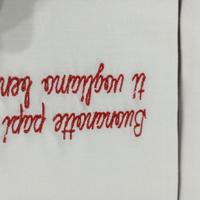 Buonanotte papi
ti vogliamo ben